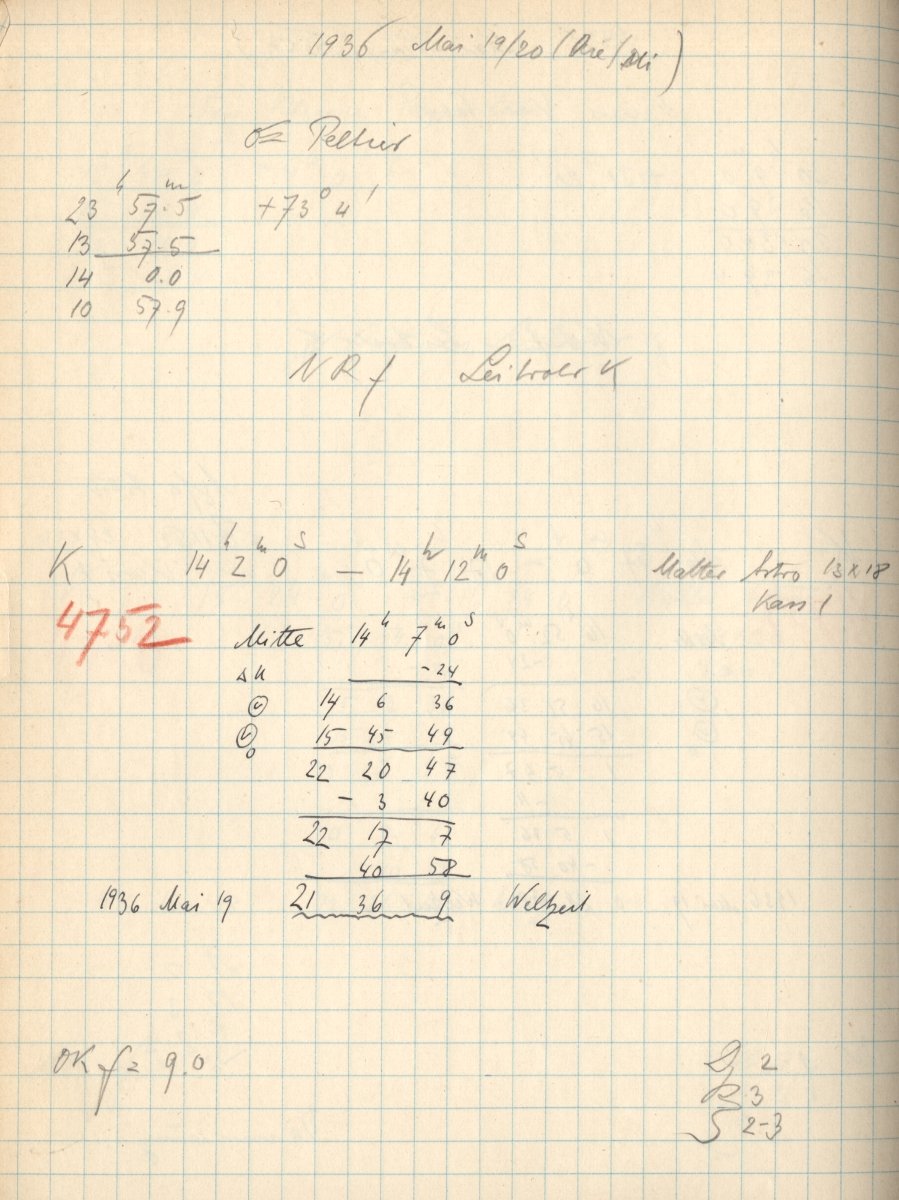 1936 Mai 19/20 (Die/Mi)
☌= Peltier
23ʰ 57ᵐ.5 +73° 4'
13 57.5
14 0.0
10 57.9
NR f Leitrohr K
K 14ʰ 2ᵐ 0ˢ — 14ʰ 12ᵐ 0ˢ Matter Astro 13x18
Kass 1
4752
Mitte 14ʰ 7ᵐ 0ˢ
ΔU -24
14 6 36
15 45 49
22 20 47
- 3 40
22 17 7
40 58
1936 Mai 19 21 36 9 Weltzeit
OK f = 9.0
D 2
R 3
S 2-3